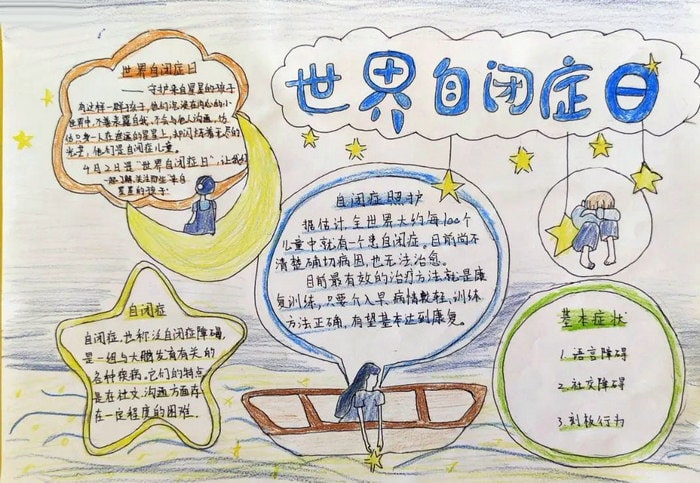 世界自闭症日
世界自闭症日
——守护来自星星的孩子
有这样一群孩子,他们沉浸在内心的小
世界中,不善表露自我,不会与他人沟通,仿
佛只身一人在遥远的星星上,却闪烁着无尽的
光芒,他们是自闭症儿童。
4月2日是“世界自闭症日”,让我们
一起了解、关注那些来自
星星的孩子
自闭症照护
据估计,全世界大约每100个
儿童中就有一个患自闭症。目前尚不
清楚确切病因,也无法治愈。
目前最有效的治疗方法就是康
复训练,只要介入早、病情较轻、训练
方法正确,有望基本达到康复。
自闭症
自闭症,也称泛自闭症障碍,
是一组与大脑发育有关的
各种疾病。它们的特点
是在社交、沟通方面存
在一定程度的困难。
基本症状
1.语言障碍
2.社交障碍
3.刻板行为